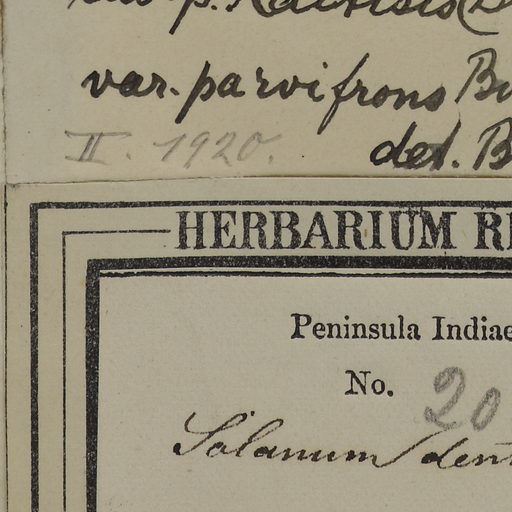 var. parvifrons Bi
II. 1920.
det. B
HERBARIUM R
Peninsula Indiae
No. 20
Solanum den